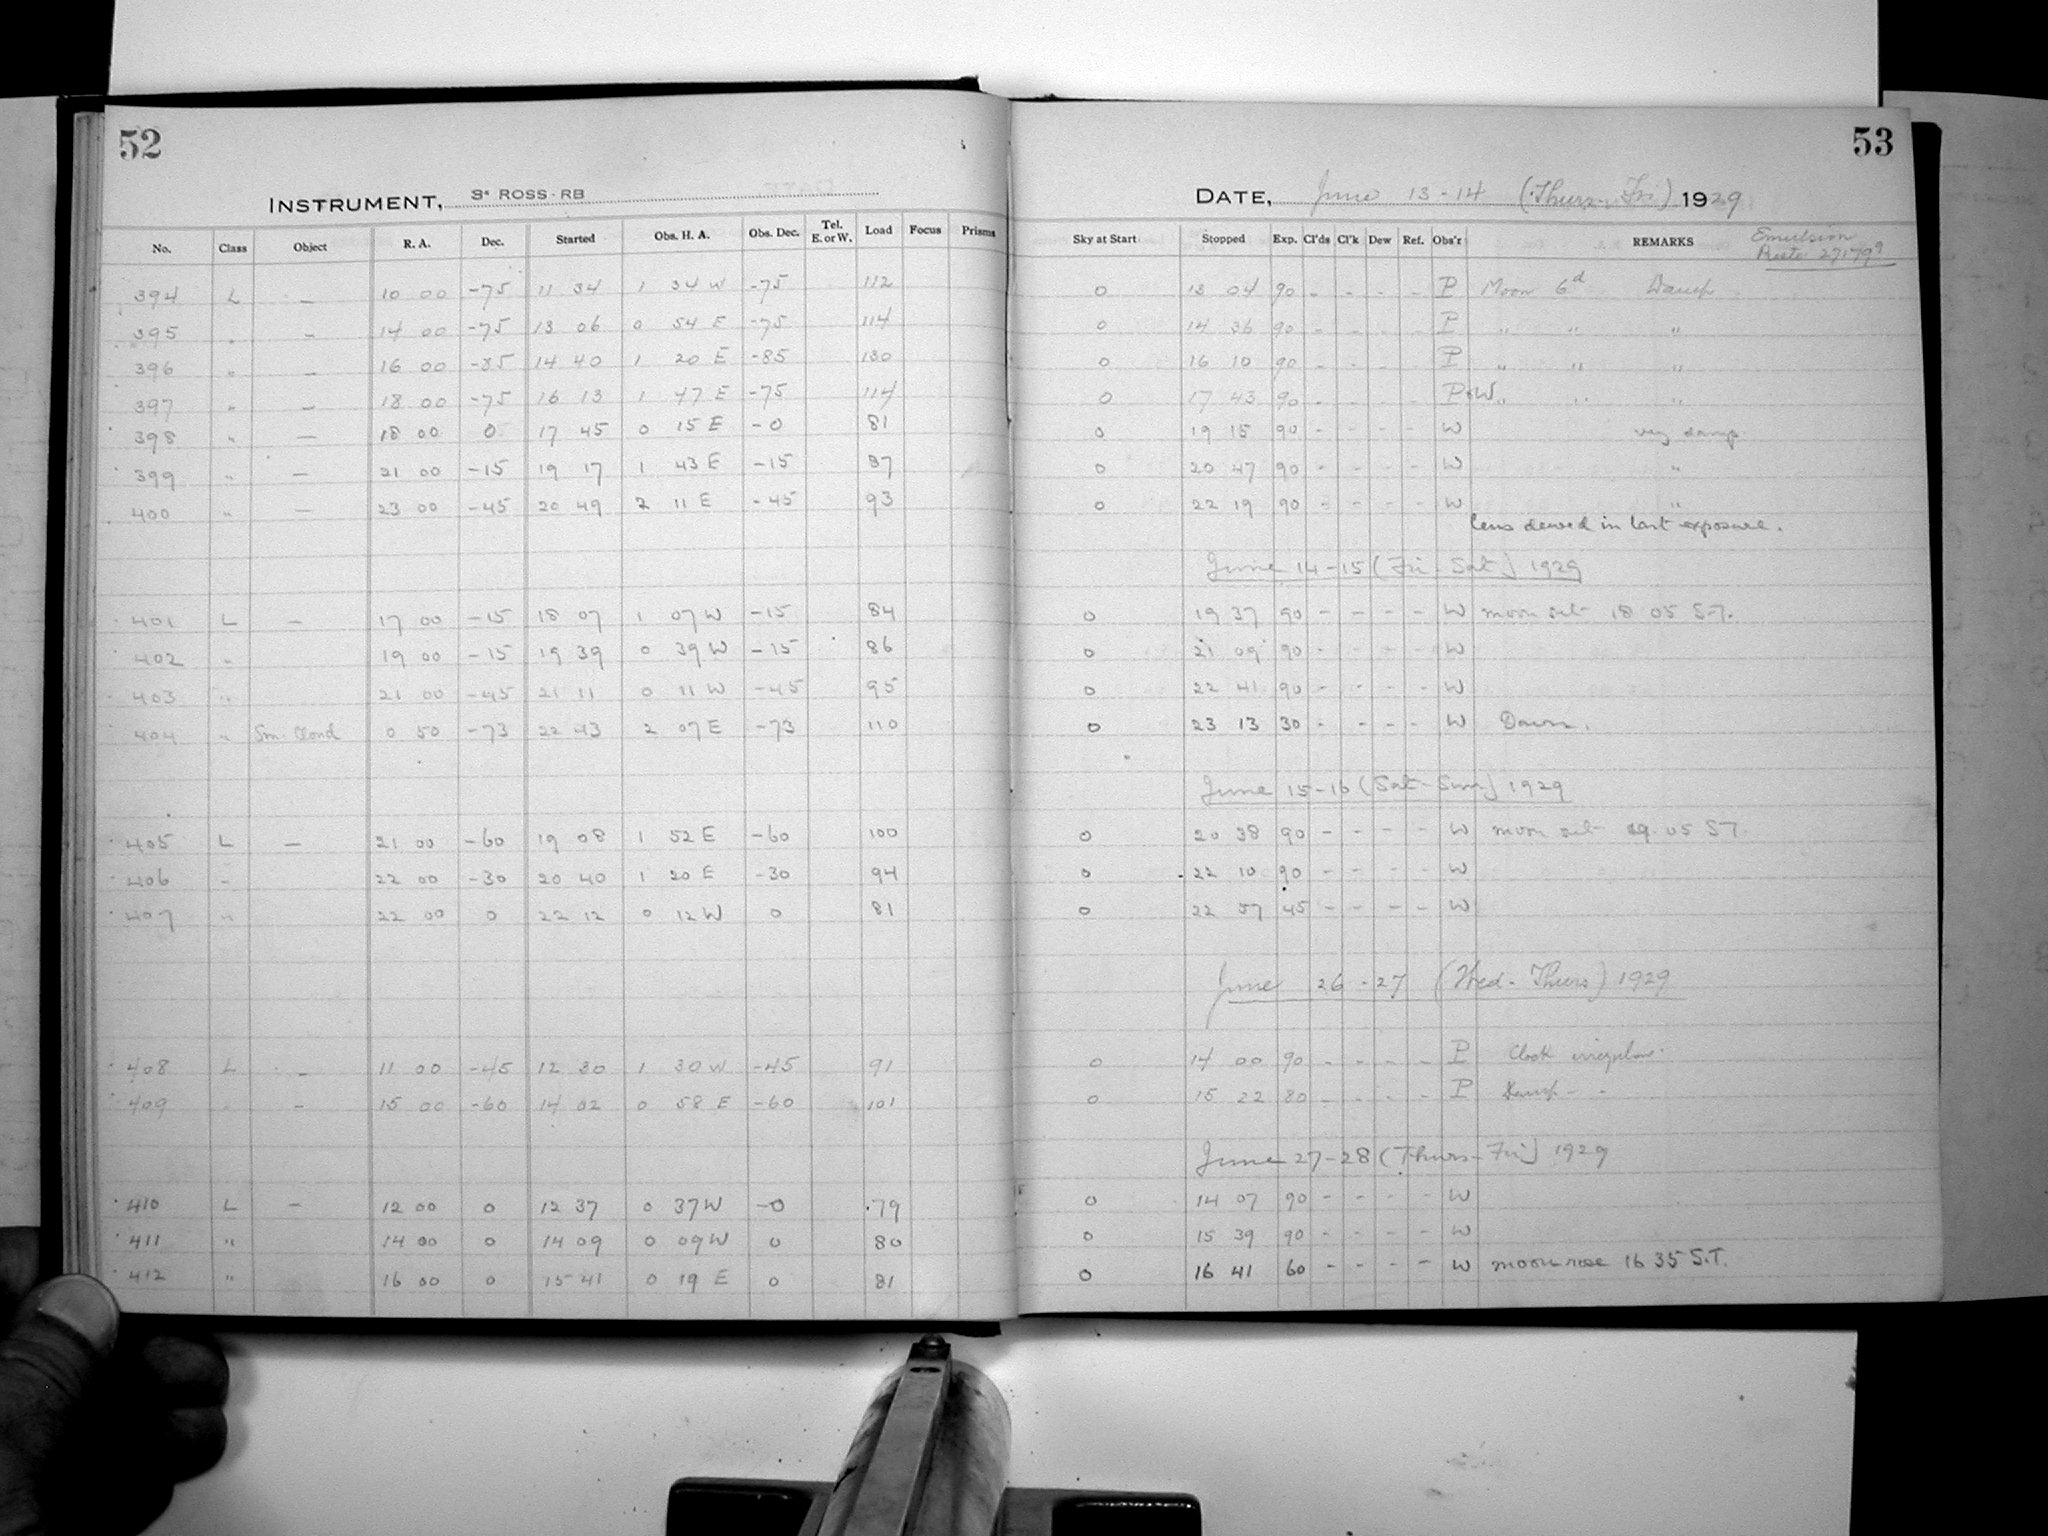 52
INSTRUMENT, 3" ROSS-RB
No. Class Object R. A. Dec. Started Obs. H. A. Obs. Dec. Tel. E. or W. Load Focus Prisms
394 L — 10 00 -75 11 34 1 34 W -75 112
395 " — 14 00 -75 13 06 0 54 E -75 114
396 " — 16 00 -85 14 40 1 20 E -85 130
397 " — 18 00 -75 16 13 1 47 E -75 114
398 " — 18 00 0 17 45 0 15 E -0 81
399 " — 21 00 -15 19 17 1 43 E -15 87
400 " — 23 00 -45 20 49 2 11 E -45 93
401 L — 17 00 -15 18 07 1 07 W -15 84
402 " 19 00 -15 19 39 0 39 W -15 86
403 " 21 00 -45 21 11 0 11 W -45 95
404 " Sm. Cloud 0 50 -73 22 43 2 07 E -73 110
405 L — 21 00 -60 19 08 1 52 E -60 100
406 " 22 00 -30 20 40 1 20 E -30 94
407 " 22 00 0 22 12 0 12 W 0 81
408 L — 11 00 -45 12 30 1 30 W -45 91
409 " — 15 00 -60 14 02 0 58 E -60 101
410 L — 12 00 0 12 37 0 37 W -0 79
411 " 14 00 0 14 09 0 09 W 0 80
412 " 16 00 0 15 41 0 19 E 0 81
53
DATE, June 13-14 (Thurs-Fri) 1929
Sky at Start Stopped Exp. Cl'ds Cl'k Dew Ref. Obs'r REMARKS Emulsion
0 13 04 90 - - - - P Moon 6d Damp
0 14 36 90 - - - - P " " "
0 16 10 90 - - - - P " " "
0 17 43 90 - - - - P+W " " "
0 19 15 90 - - - - W very damp
0 20 47 90 - - - - W "
0 22 19 90 - - - - W "
lens dewed in last exposure.
June 14-15 (Fri-Sat) 1929
0 19 37 90 - - - - W moon set 18 05 S.T.
0 21 09 90 - - - - W
0 22 41 90 - - - - W
0 23 13 30 - - - - W Dawn.
June 15-16 (Sat-Sun) 1929
0 20 38 90 - - - - W moon set 19 05 ST.
0 22 10 90 - - - - W
0 22 57 45 - - - - W
June 26-27 (Wed-Thurs) 1929
0 14 00 90 - - - - P Clock irregular.
0 15 22 80 - - - - P Damp - -
June 27-28 (Thurs-Fri) 1929
0 14 07 90 - - - - W
0 15 39 90 - - - - W
0 16 41 60 - - - - W moon rose 16 35 S.T.